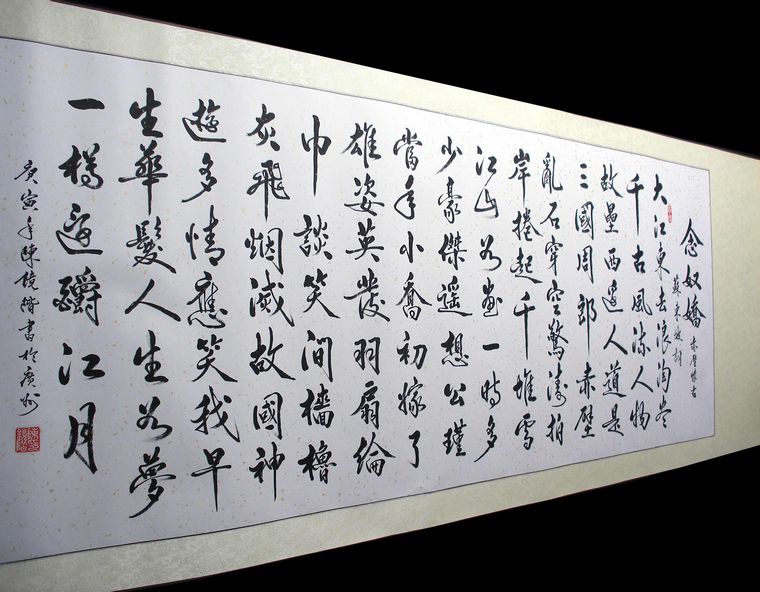 念奴嬌 赤壁懷古
蘇東坡詞
大江東去浪淘盡
千古風流人物
故壘西邊人道是
三國周郎赤壁
亂石穿空驚濤拍
岸捲起千堆雪
江山如畫一時多
少豪傑遙想公瑾
當年小喬初嫁了
雄姿英發羽扇綸
巾談笑間檣櫓
灰飛烟滅故國神
遊多情應笑我早
生華髮人生如夢
一樽還酹江月
庚寅年陳鏡階書於廣州